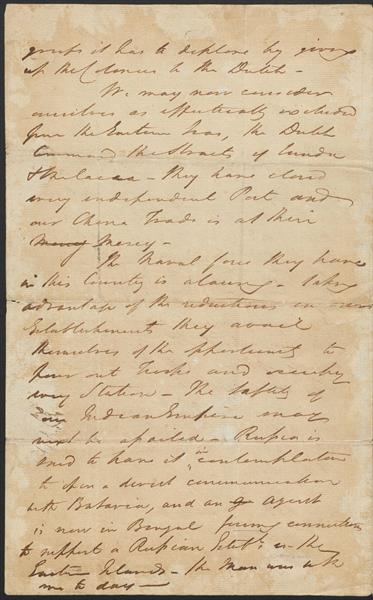 it has to deplore by giving
up the Colonies to the Dutch –
We may now consider
ourselves as effectually excluded
from the Eastern Seas, the Dutch
Command the Straits of Sunda
& Malacca – they have closed
every independent Port and
our China Trade is at their
Mercy –
The Naval force they have
in this Country is alarming – taking
advantage of the reductions in our
Establishments they avail
themselves of the opportunity to
pour out Troops and
every Station – The safety of
our Indian Empire may
next be – Russia is
said to have it in contemplation
to open a direct communication
with Batavia, and an Agent
is now in Bengal forming connections
to support a Russian Estabt. in the
Eastern Islands – the Man was with
me to day –